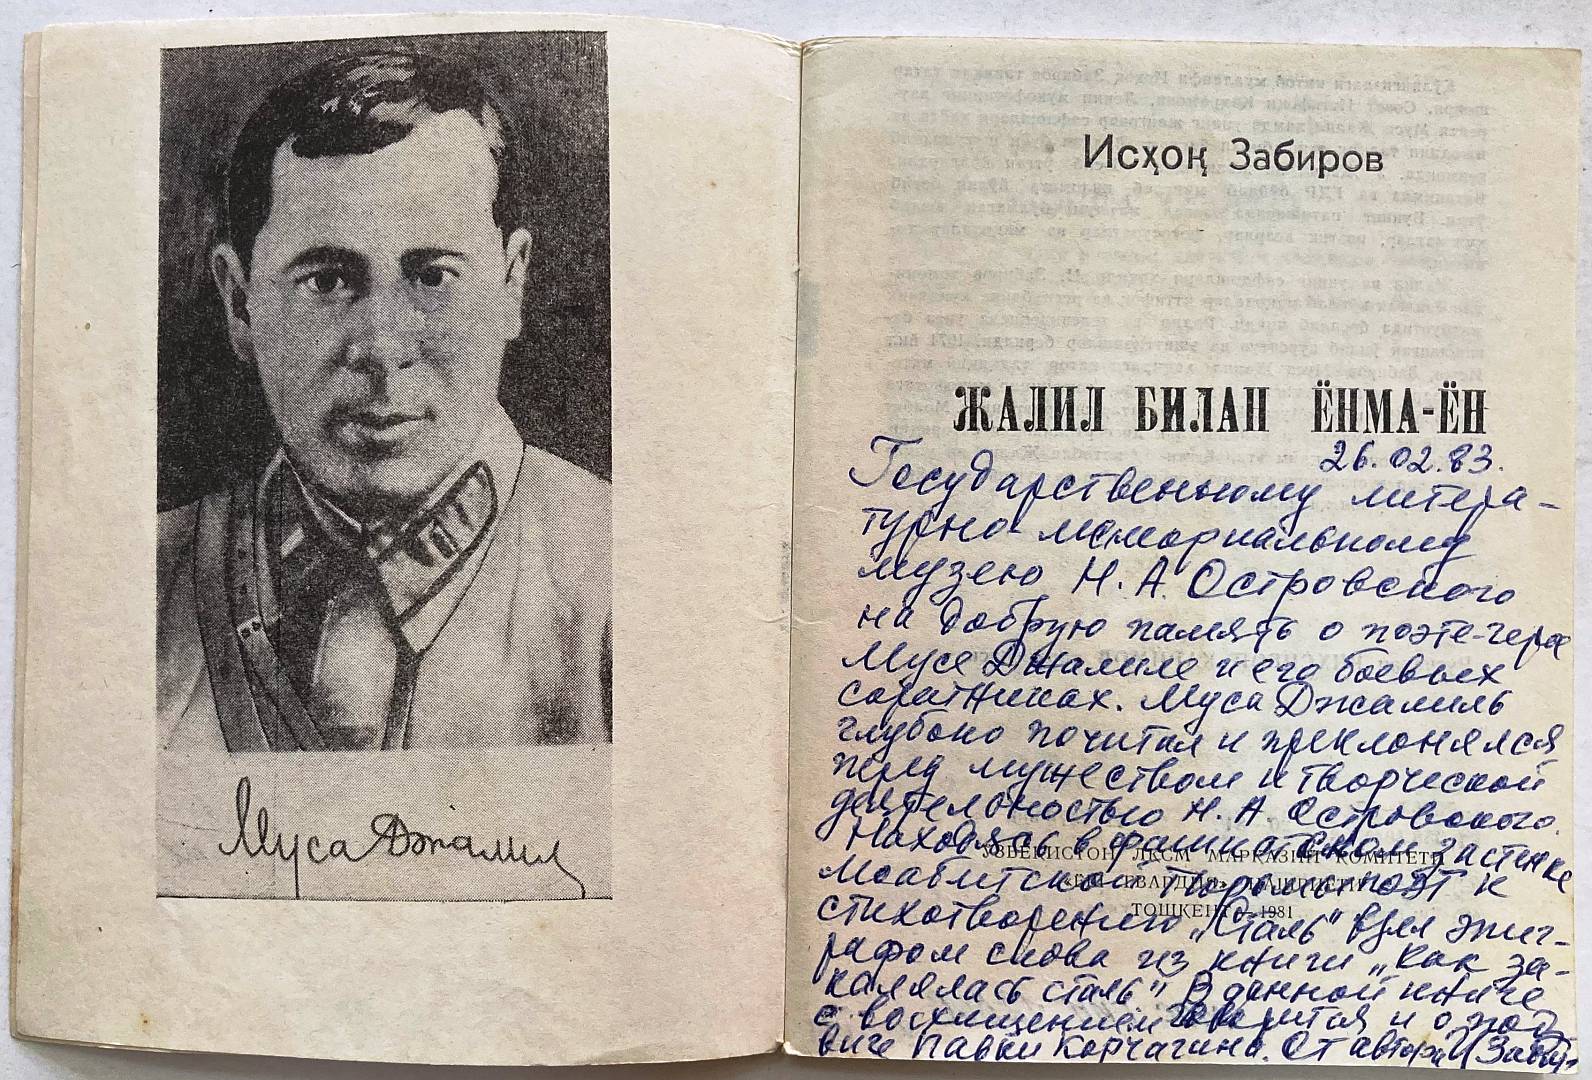 Муса Джалил
Исҳоқ Забиров
ЖАЛИЛ БИЛАН ЁНМА-ЁН
26.02.83.
Государственному литера-
турно-мемориальному
музею Н. А. Островского
на добрую память о поэте-герое
Мусе Джалиле и его боевых
соратниках. Муса Джалиль
глубоко почитал и преклонялся
перед мужеством и творческой
деятельностью Н. А. Островского.
Находясь в фашистском застенке
Моабитской тюрьмы поэт к
стихотворению „Сталь" взял эпиг-
рафом слова из книги „Как за-
калялась сталь". В данной книге
с восхищением говорится и о под-
виге Павки Корчагина. От автора
ЎЗБЕКИСТОН ЛКСМ МАРКАЗИЙ КОМИТЕТИ
«ЁШ ГВАРДИЯ» НАШРИЁТИ
ТОШКЕНТ — 1981